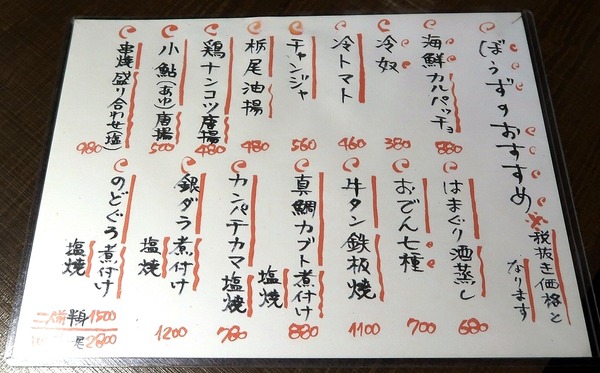 ぼうずのおすすめ
※税抜き価格と
なります
海鮮カルパッチョ
880
冷奴
380
冷トマト
460
チャンジャ
560
栃尾油揚
480
鶏ナンコツ唐揚
480
小鮎(あゆ)唐揚
500
串焼盛り合わせ(塩)
980
はまぐり酒蒸し
680
おでん七種
700
牛タン鉄板焼
1100
真鯛カブト煮付け
塩焼
880
カンパチカマ塩焼
780
銀ダラ煮付け
塩焼
1200
のどぐろ煮付け
塩焼
半身1500
2800